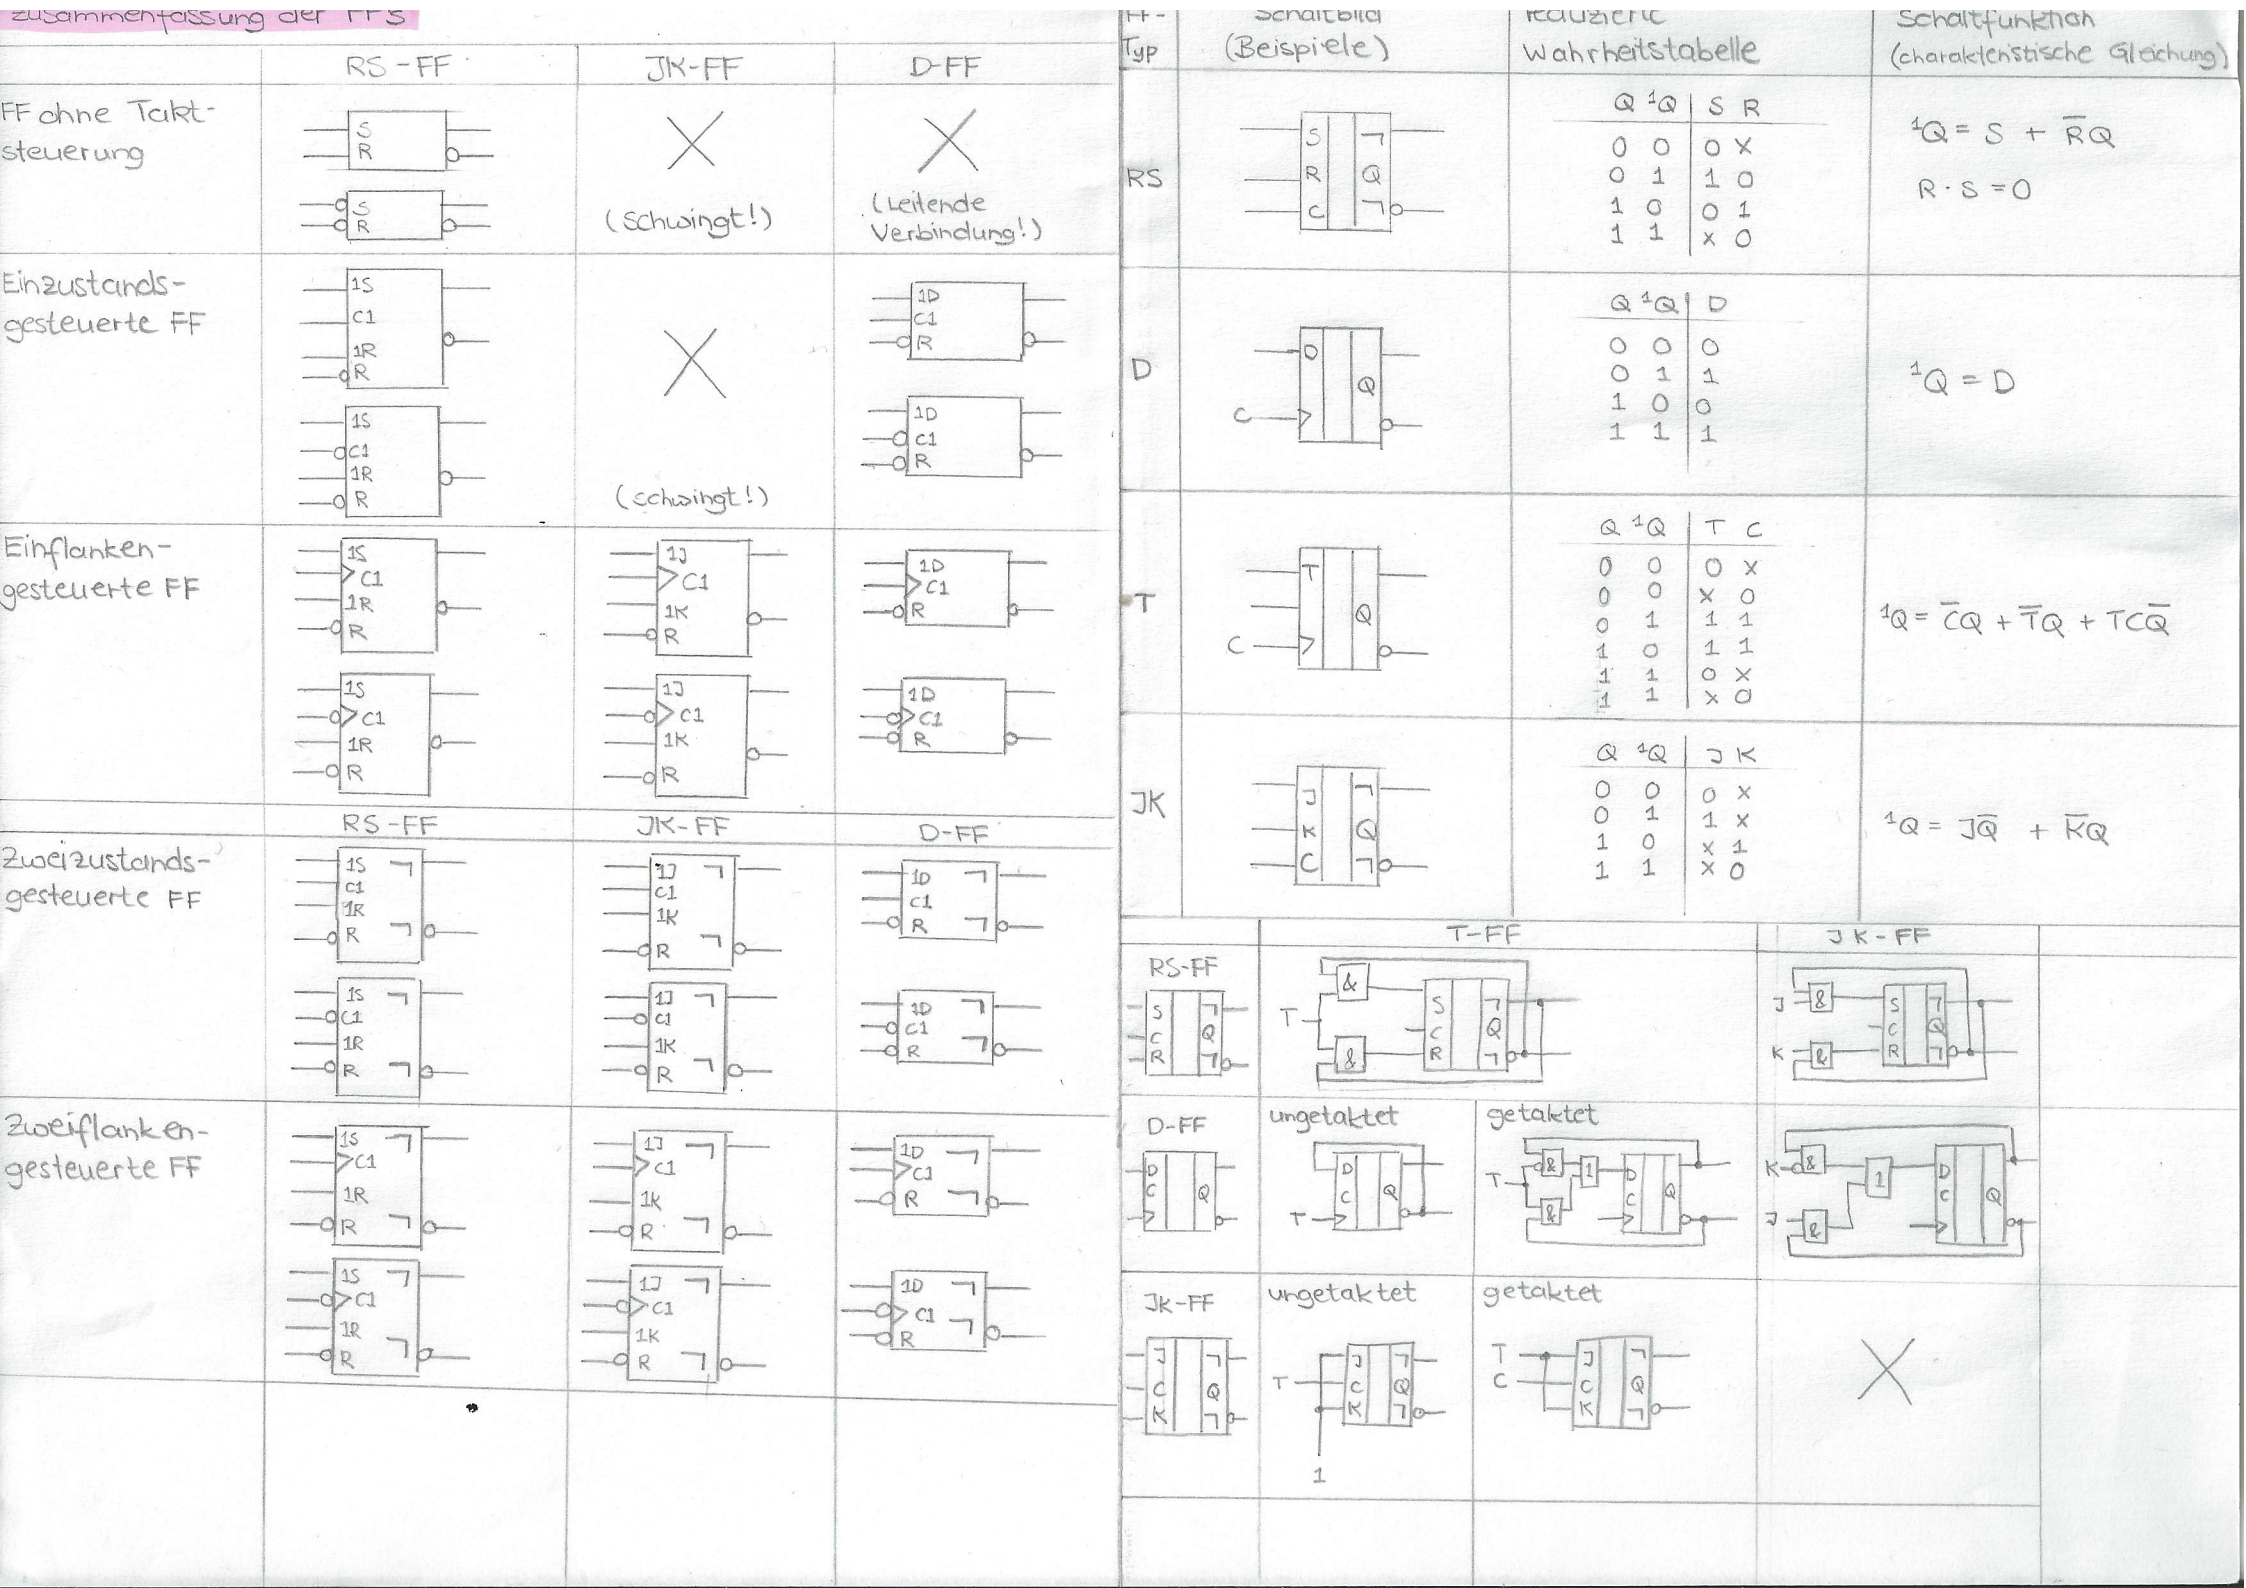 Zusammenfassung der FFs
RS-FF JK-FF D-FF
FF ohne Takt-
steuerung
S
R
S
R
(schwingt!)
(Leitende
Verbindung!)
Einzustands-
gesteuerte FF
1S
C1
1R
R
1S
C1
1R
R
(schwingt!)
1D
C1
R
1D
C1
R
Einflanken-
gesteuerte FF
1S
C1
1R
R
1S
C1
1R
R
1J
C1
1K
R
1J
C1
1K
R
1D
C1
R
1D
C1
R
RS-FF JK-FF D-FF
Zweizustands-
gesteuerte FF
1S ¬
C1
1R
R ¬
1S ¬
C1
1R
R ¬
1J ¬
C1
1K
R ¬
1J ¬
C1
1K
R ¬
1D ¬
C1
R ¬
1D ¬
C1
R ¬
Zweiflanken-
gesteuerte FF
1S ¬
C1
1R
R ¬
1S ¬
C1
1R
R ¬
1J ¬
C1
1K
R ¬
1J ¬
C1
1K
R ¬
1D ¬
C1
R ¬
1D ¬
C1
R ¬
FF-
Typ
Schaltbild
(Beispiele)
reduzierte
Wahrheitstabelle
Schaltfunktion
(charakteristische Gleichung)
RS
S ¬
R Q
C ¬
Q ¹Q S R
0 0 0 x
0 1 1 0
1 0 0 1
1 1 x 0
¹Q = S + R̅Q
R · S = 0
D
D
Q
C
Q ¹Q D
0 0 0
0 1 1
1 0 0
1 1 1
¹Q = D
T
T
Q
C
Q ¹Q T C
0 0 0 x
0 0 x 0
0 1 1 1
1 0 1 1
1 1 0 x
1 1 x 0
¹Q = C̅Q + T̅Q + TCQ̅
JK
J ¬
K Q
C ¬
Q ¹Q J K
0 0 0 x
0 1 1 x
1 0 x 1
1 1 x 0
¹Q = JQ̅ + K̅Q
T-FF JK-FF
RS-FF
S ¬
C Q
R ¬
T
&
&
S ¬
C Q
R ¬
J &
K &
S ¬
C Q
R ¬
D-FF
D
C Q
ungetaktet
D
C Q
T
getaktet
T
& 1
&
D
C Q
K & 1
J &
D
C Q
JK-FF
J ¬
C Q
K ¬
ungetaktet
T
J ¬
C Q
K ¬
1
getaktet
T
C
J ¬
C Q
K ¬